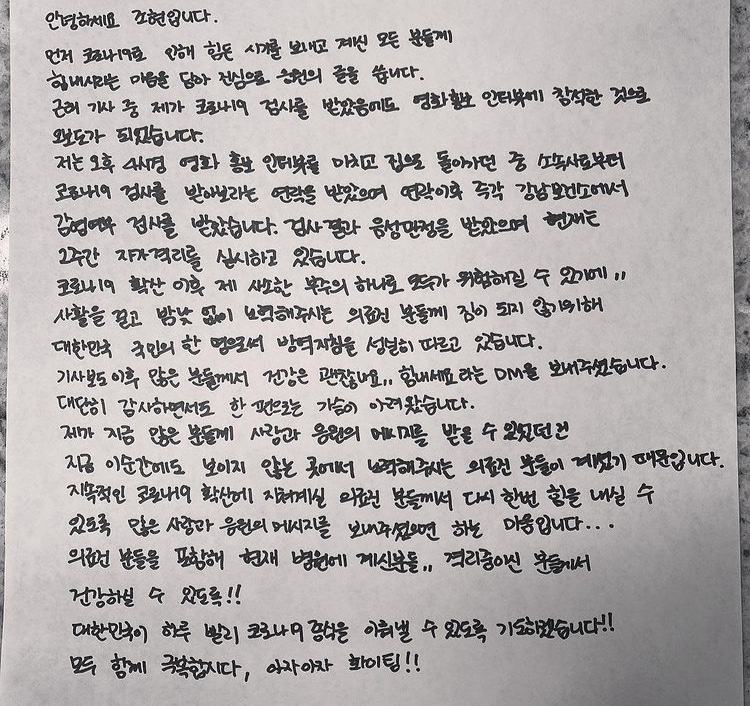 안녕하세요 조현입니다.
먼저 코로나19로 인해 힘든 시기를 보내고 계신 모든 분들께
힘내시라는 마음을 담아 진심으로 응원의 글을 씁니다.
근허 기사 중 제가 코로나19 검사를 받았음에도 영화홍보 인터뷰에 참석한 것으로
오보도가 되었습니다.
저는 오후 4시경 영화 홍보 인터뷰를 마치고 집으로 돌아가던 중 소속사로부터
코로나19 검사를 받아보라는 연락을 받았으며 연락이후 즉각 강남보건소에서
감염여부 검사를 받았습니다. 검사결과 음성판정을 받았으며 현재는
2주간 자가격리를 실시하고 있습니다.
코로나19 확산 이후 제 사소한 부주의 하나로 모두가 위험해질 수 있기에,,
사활을 걸고 밤낮 없이 노력해주시는 의료진 분들께 짐이 되지 않기위해
대한민국 국민의 한 명으로써 방역지침을 성실히 따르고 있습니다.
기사보도이후 많은 분들께서 건강은 괜찮냐요,, 힘내세요라는 DM을 보내주셨습니다.
대단히 감사하면서도 한 편으로는 가슴이 아려왔습니다.
제가 지금 많은 분들께 사랑과 응원의 메시지를 받을 수 있었던건
지금 이순간에도 보이지 않는 곳에서 노력해주시는 의료진 분들이 계셨기 때문입니다.
지속적인 코로나19 확산에 지쳐계실 의료진 분들께서 다시 한번 힘을 내실 수
있도록 많은 사랑과 응원의 메시지를 보내주셨으면 하는 마음입니다...
의료진 분들을 포함해 현재 병원에 계신분들,, 격리중이신 분들께서
건강하실 수 있도록!!
대한민국이 하루 빨리 코로나19 종식을 이뤄낼 수 있도록 기도하겠습니다!!
모두 함께 극복합시다, 아자아자 화이팅!!